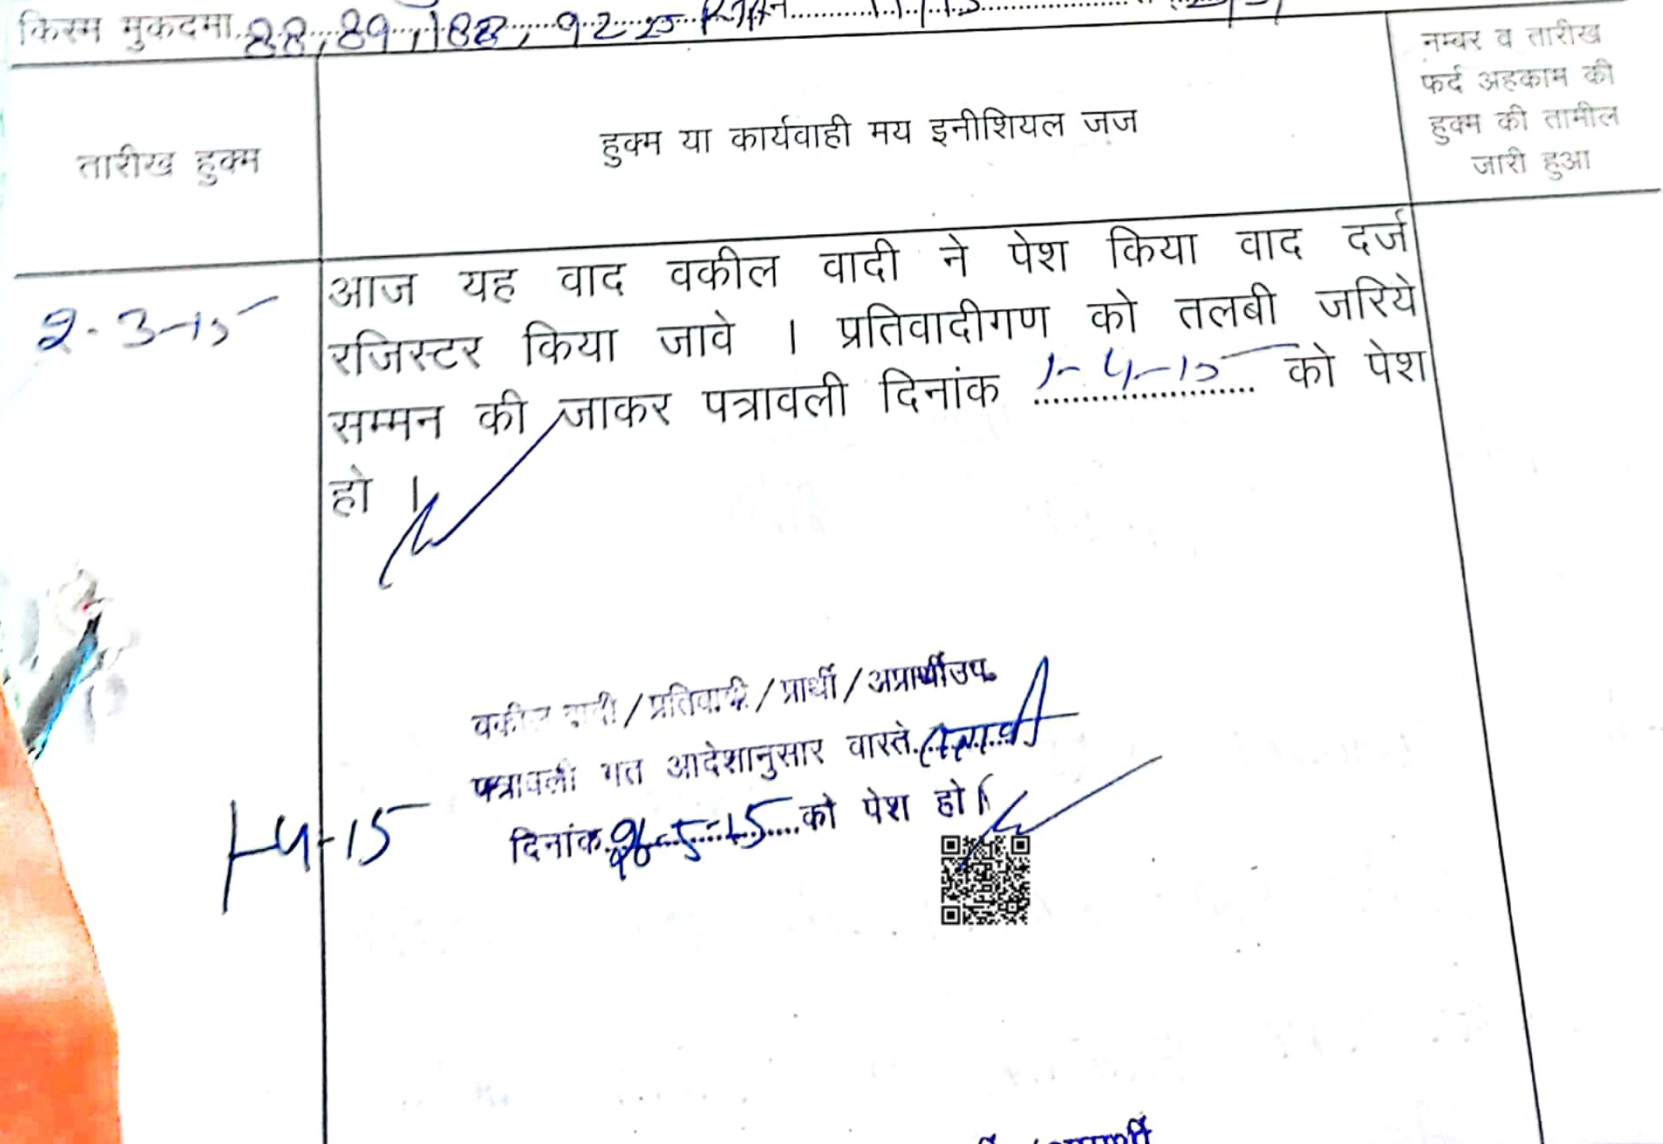 किस्म मुकदमा 88, 89, 188, 92
तारीख हुक्म
हुक्म या कार्यवाही मय इनीशियल जज
नम्बर व तारीख
फर्द अहकाम की
हुक्म की तामील
जारी हुआ
2-3-15
आज यह वाद वकील वादी ने पेश किया वाद दर्ज
रजिस्टर किया जावे । प्रतिवादीगण को तलबी जरिये
सम्मन की जाकर पत्रावली दिनांक 1-4-15 को पेश
हो ।
वकील वादी/प्रतिवादी/प्रार्थी/अप्रार्थी उप.
पत्रावली गत आदेशानुसार वास्ते
1-4-15
दिनांक 26-5-15 को पेश हो।